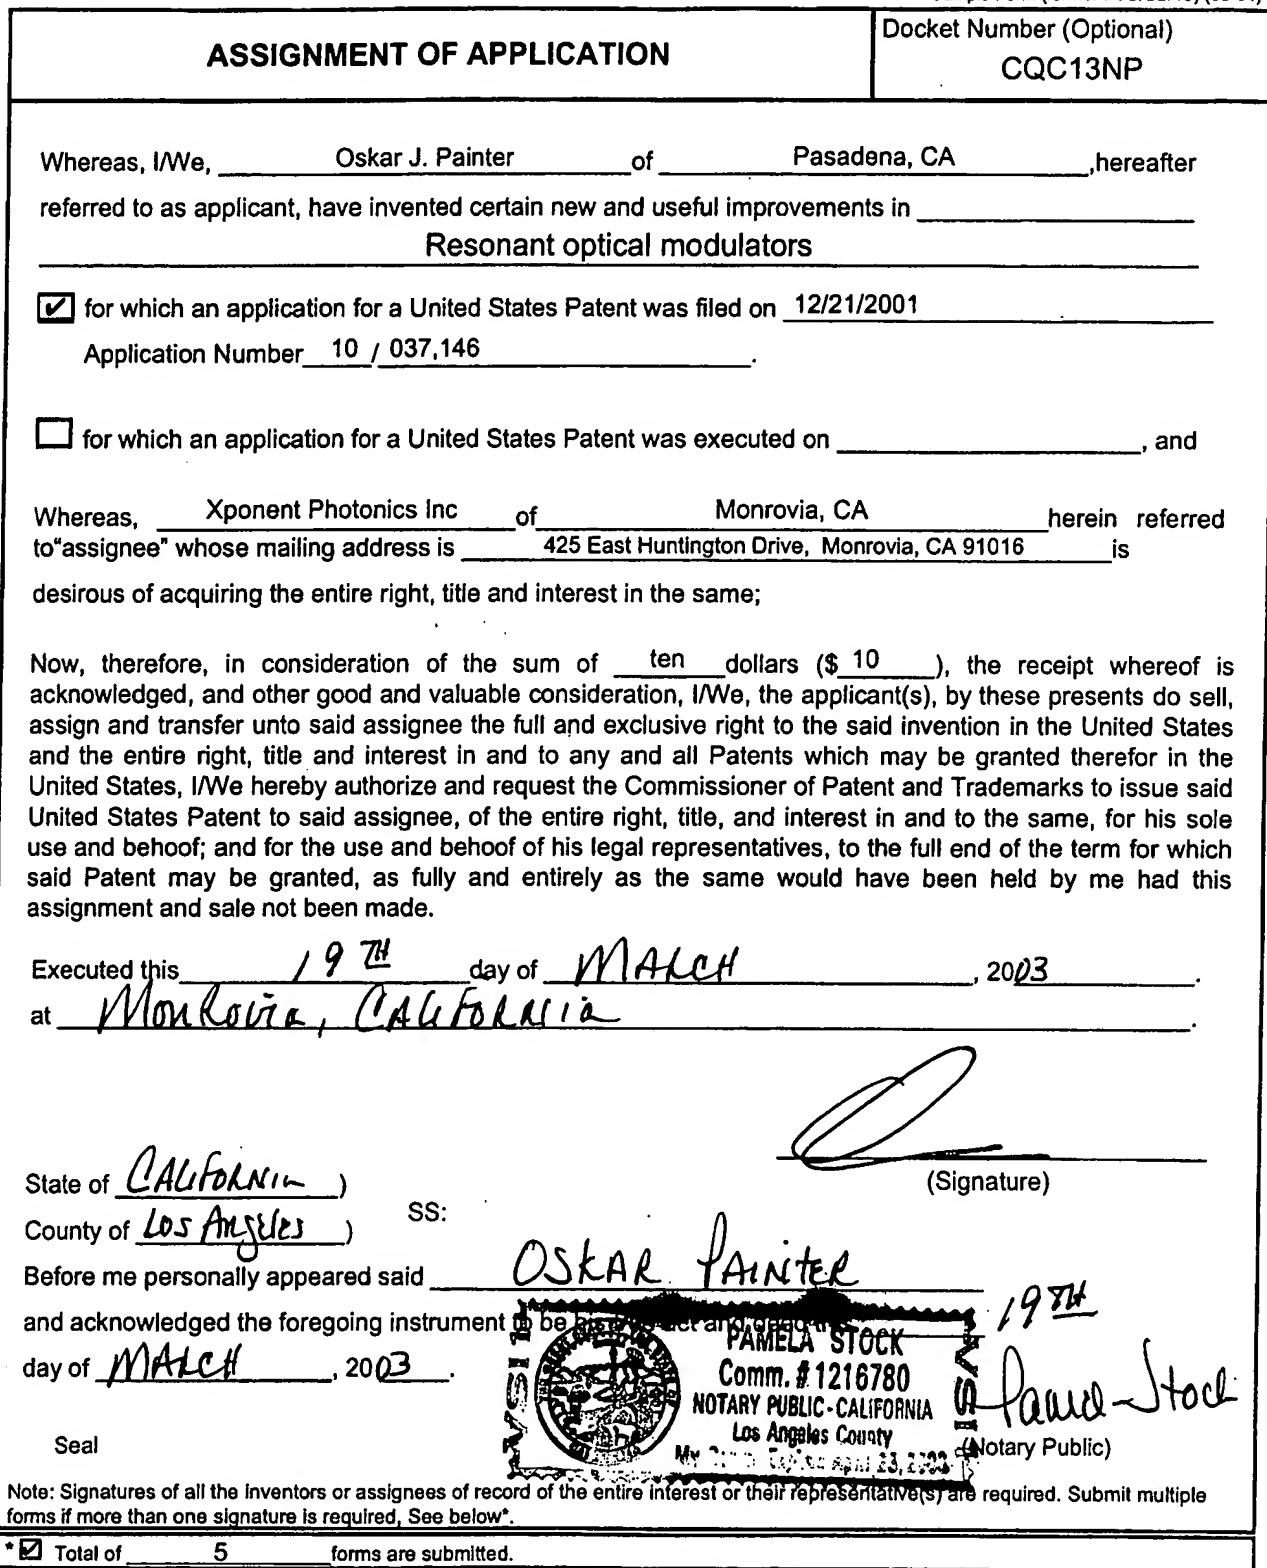 ASSIGNMENT OF APPLICATION
Docket Number (Optional)
CQC13NP
Whereas, I/We, Oskar J. Painter of Pasadena, CA ,hereafter
referred to as applicant, have invented certain new and useful improvements in
Resonant optical modulators
for which an application for a United States Patent was filed on 12/21/2001
Application Number 10 / 037,146 .
for which an application for a United States Patent was executed on , and
Whereas, Xponent Photonics Inc of Monrovia, CA herein referred
to"assignee" whose mailing address is 425 East Huntington Drive, Monrovia, CA 91016 is
desirous of acquiring the entire right, title and interest in the same;
Now, therefore, in consideration of the sum of ten dollars ($ 10 ), the receipt whereof is
acknowledged, and other good and valuable consideration, I/We, the applicant(s), by these presents do sell,
assign and transfer unto said assignee the full and exclusive right to the said invention in the United States
and the entire right, title and interest in and to any and all Patents which may be granted therefor in the
United States, I/We hereby authorize and request the Commissioner of Patent and Trademarks to issue said
United States Patent to said assignee, of the entire right, title, and interest in and to the same, for his sole
use and behoof; and for the use and behoof of his legal representatives, to the full end of the term for which
said Patent may be granted, as fully and entirely as the same would have been held by me had this
assignment and sale not been made.
Executed this 19TH day of MARCH , 2003 .
at Monrovia, CALIFORNIA .
(Signature)
State of CALIFORNIA )
County of Los Angeles )
SS:
Before me personally appeared said OSKAR PAINTER
and acknowledged the foregoing instrument to be act and deed 19TH
day of MARCH , 2003 .
PAMELA STOCK
Comm. # 1216780
NOTARY PUBLIC-CALIFORNIA
Los Angeles County
Pamela Stock
(Notary Public)
Seal
Note: Signatures of all the inventors or assignees of record of the entire interest or their representative(s) are required. Submit multiple
forms if more than one signature is required, See below*.
* Total of 5 forms are submitted.